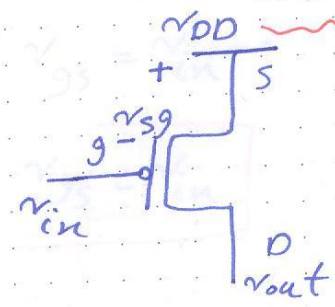 VDD
+ S
vsg
g -
vin
D
vout